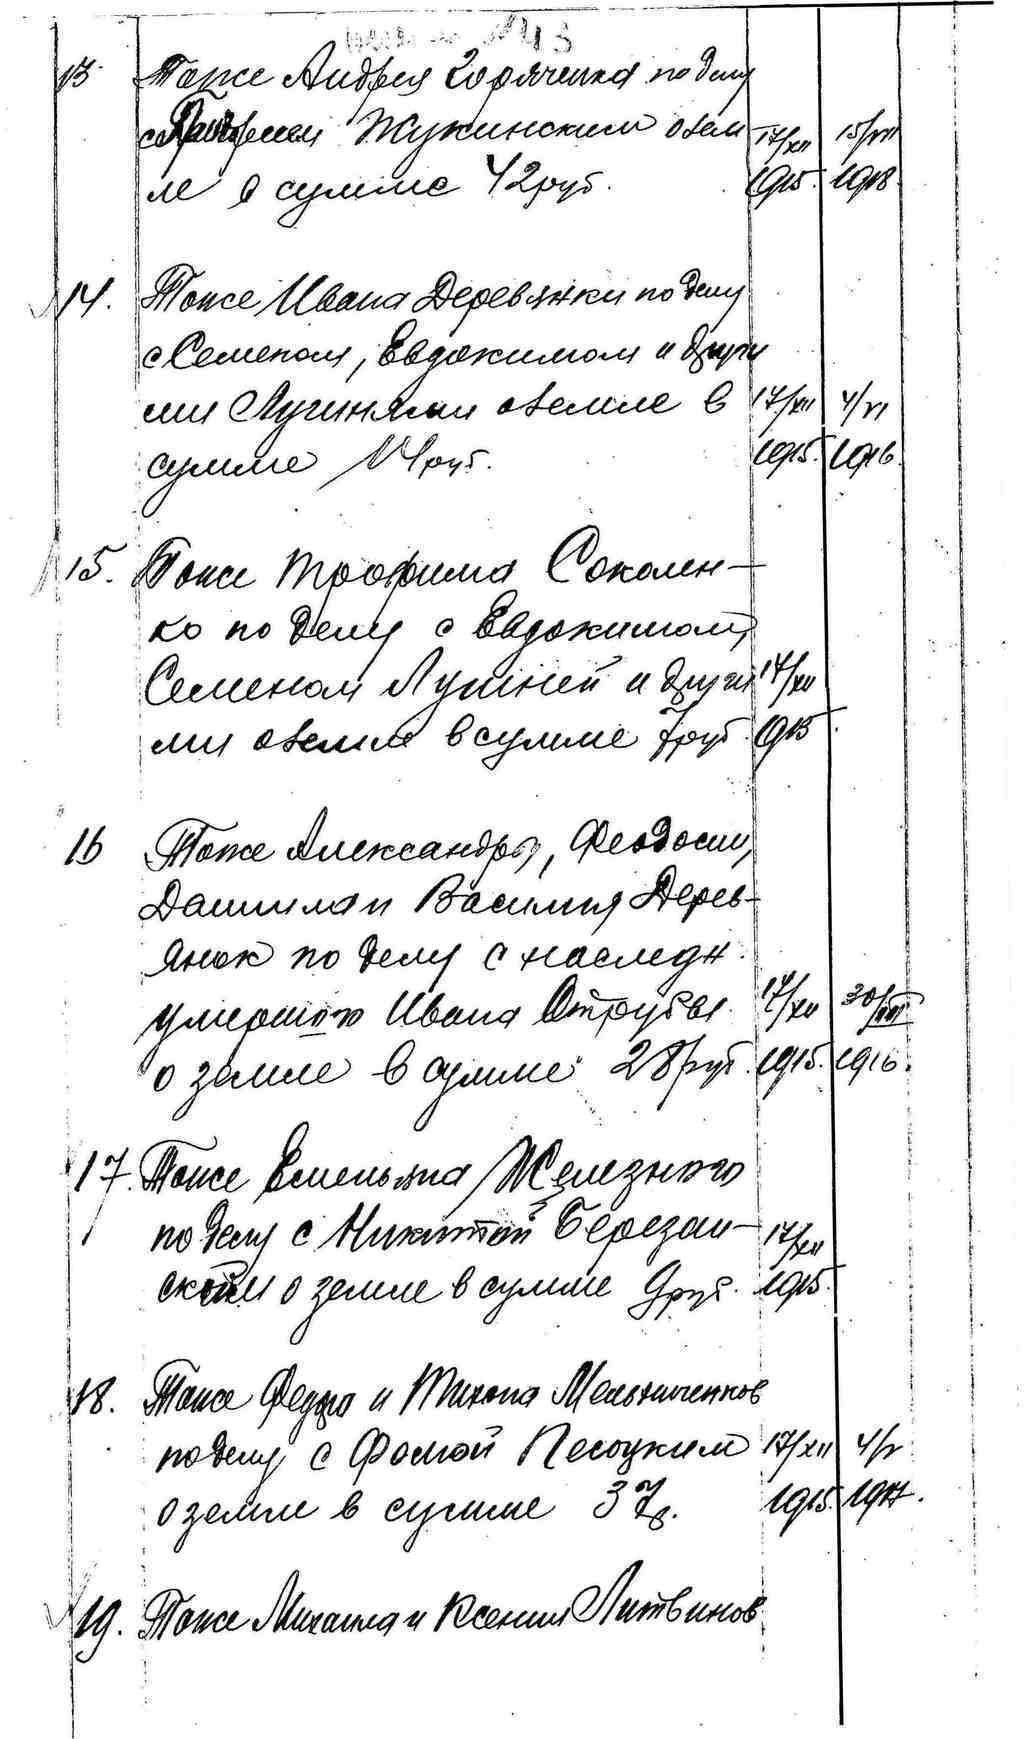 13 Тоже Андрея Горяченка по делу
с Жукинским о зем 17/XII 15/VII
ле в сумме 42 руб. 1915. 1918.
14. Тоже Ивана Деревянки по делу
с Семеном, Евдокимом и други
ми Лугинями о земле в 17/XII 4/VI
сумме 14 руб. 1915. 1916.
15. Тоже Трофима Соколен-
ко по делу с Евдокимом,
Семеном Лугиней и други 17/XII
ми о земле в сумме 7 руб. 1915
16 Тоже Александры, Феодосии,
Даниила и Василия Дерев-
янок по делу с наследн.
умершого Ивана Отрубы 17/XII 30/VIII
о земле в сумме 28 руб. 1915. 1916.
17. Тоже Емельяна Железного
по делу с Никитой Березан- 17/XII
ским о земле в сумме 9 руб. 1915.
18. Тоже Федора и Тихона Мельниченков
по делу с Фомой Песоцким 17/XII 4/V
о земле в сумме 37 р. 1915 1917.
19. Тоже Михаила и Ксении Литвинов